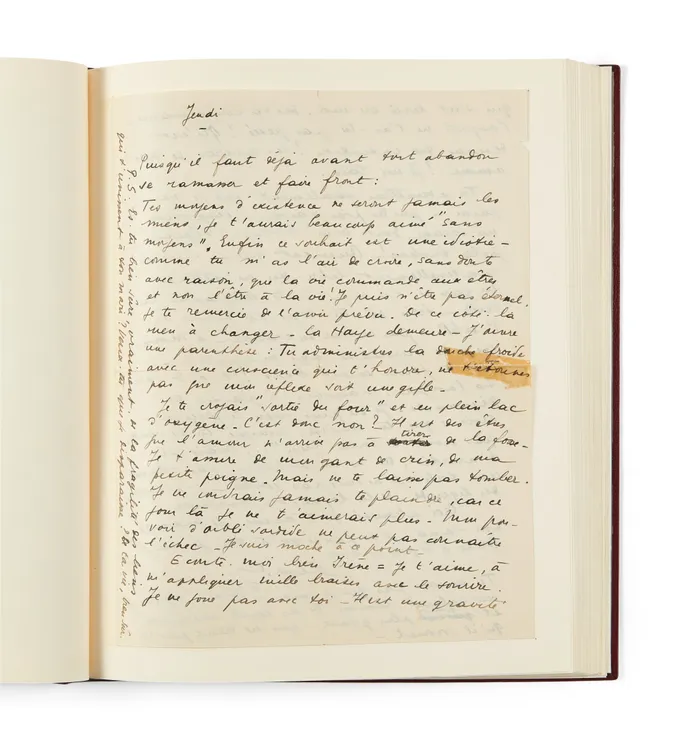 Jeudi
Puisqu'il faut déjà avant tout abandon
se ramasser et faire front :
Tes moyens d'existence ne seront jamais les
miens, je t'aurais beaucoup aimé "sans
moyens". Enfin ce souhait est une idiotie –
comme tu m'as l'air de croire, sans doute
avec raison, que la vie commande aux êtres
et non l'être à la vie! Je puis n'être pas éternel.
Je te remercie de l'avoir prévu. De ce côté là
rien à changer – la Haye demeure – J'ouvre
une parenthèse : Tu administres la douche froide
avec une conscience qui t'honore, ne t'étonnes
pas que mon réflexe soit une gifle –
Je te croyais "sortie du four" et en plein lac
d'oxygène – C'est donc non? Il est des êtres
que l'amour n'arrive pas à tirer de la fosse –
Je t'assure de mon gant de crin, de ma
petite poigne. Mais ne te laisse pas tomber.
Je ne voudrais jamais te plaindre, car ce
jour là je ne t'aimerais plus – Mon pou-
voir d'oubli sordide ne peux pas connaître
l'échec – Je suis moche à ce point –
Ecoute moi bien Irène = Je t'aime, à
m'appliquer mille braises avec le sourire.
Je ne joue pas avec toi – Il est une gravité
P.S. Es-tu bien sûre, vraiment, de la fragilité des liens
qui t'unissent à ton mari? que je disparaisse. la vie, bien sûr.